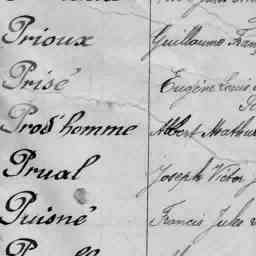 Prioux Guillaume Franç
Prisé Eugène Louis
Prod'homme Albert Mathur
Prual Joseph Victor J
Puisné Francis Jules